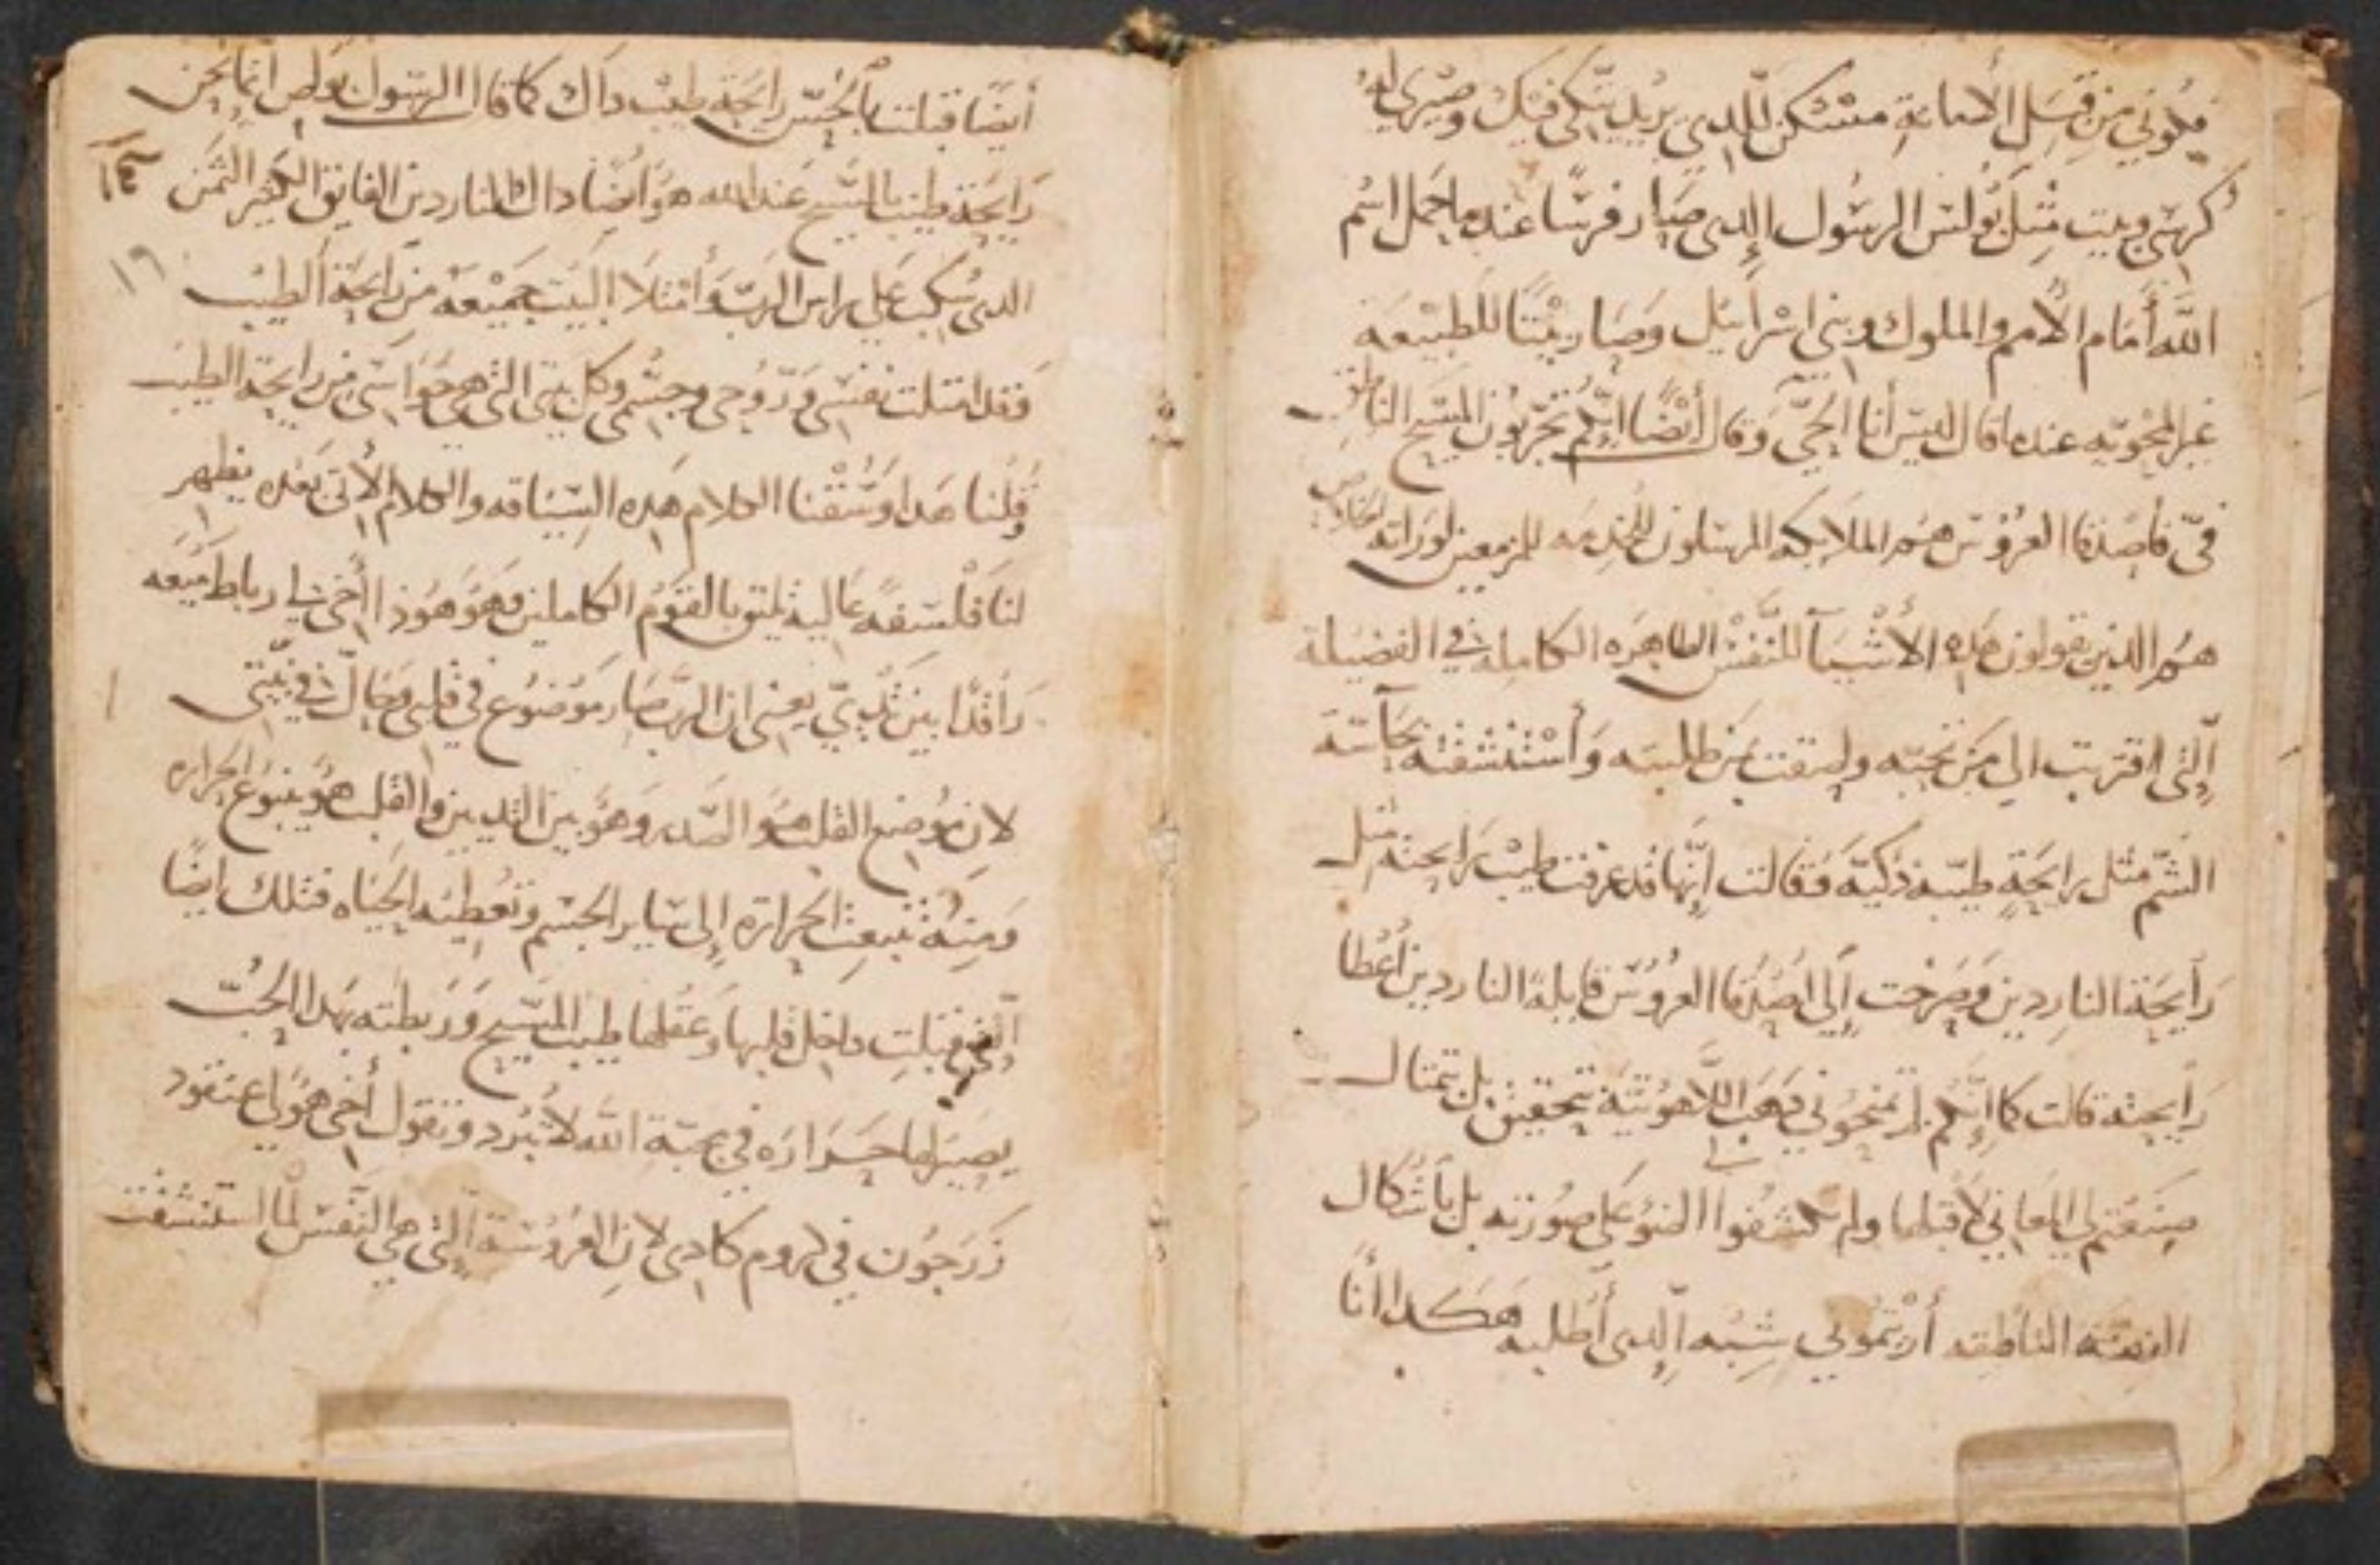 فكوني من قبل الامانة مسكن للدي يريد يتكي فيك وصيري له
كرسي وبيت مثل بولس الرسول الدي صار فرسًا عندما حمل اسم
الله أمام الأمم والملوك وبني اسرائيل وصار بيتًا للطبيعه
غير المحويه عندما قال ليس أنا الحيّ وقال أيضًا انكم تجربون المسيح الناطق
فيّ فأصدقا العروس هم الملايكه المرسلون للخدمه للمزمعين لوراثه الخلاص
هم الدين يقولون هده الأشيآ للنفس الطاهره الكامله في الفضيلة
الّتي اقتربت الي من تحبه ولحقت من طلبته وأستنشقته بحآسة
الشمّ مثل رايحةٍ طيّبه ذكيّة فقالت إنّها قد عرفت طيب رايحته مثل
رآيحة الناردين وصرخت إلي اصدقا العروس قايلة الناردين أعطا
رايحته قالت كما إنكم لم تمنحوني دهب اللّاهوتية بتحقيق بل بتمتال
صنعتم لي المعاني لأقبلها ولم تكشفوا الضو على صورته بل بأشكال
الفضة الناطقه أريتموني شبه الّدى أطلبه هكدا أنا
أيضًا قبلت بالحسّ رايحة طيب داك كما قال الرسول بولص انما نحن
رايحة طيب المسيح عند الله هو أيضًا داك الناردين الفايق الكثير الثمن
الدي سكب على راس الرب وأمتلا البيت جميعه من رآيحة الطيب
فقد امتلت نفسي وروحي وجسمي وكل بيتي التي هي حواسي من رايحة الطيب
قلنا هدا وسقنا الكلام هده السياقه والكلام الأتي بعده يظهر
لنا فلسفه عاليه تليق بالقوم الكاملين وهو هوذا أخي لي رباط ميعه
راقدًا بين ثدييّ يعني ان الربّ صار موضوع في قلبي وحالّ في نيتي
لان موضع القلب هو الصدر وهو بين التديين والقلب هو ينبوع الحراره
ومنه تنبعث الحراره إلى ساير الجسم وتعطيه الحياه فتلك ايضًا
الّتي قبلت داخل قلبها وعقلها طيب المسيح وربطته بهدا الحُبّ
يصير لها حرارة في محبّة الله لا تبرد وتقول أخي هو لي عنقود
زرجون في كروم كادي لان العروسة الّتي هي النّفس لمّا استنشقت